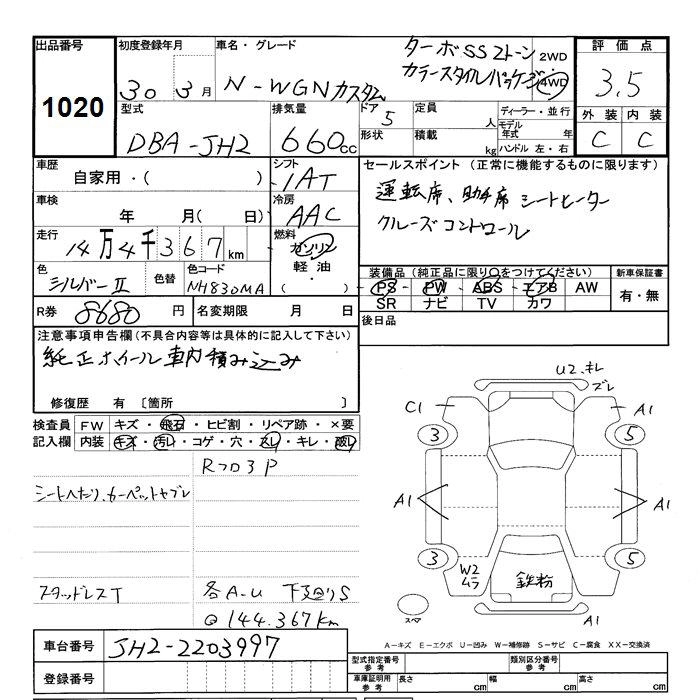 出品番号 初度登録年月 車名・グレード ターボ SS 2トーン 2WD 評価点
1020 30年 3月 N-WGNカスタム カラースタイルパッケージ 4WD 3.5
型式 排気量 ドア 5 定員 人 ディーラー・並行 外装 内装
DBA-JH2 660cc 形状 積載 kg モデル年式 年 ハンドル 左・右 C C
車歴 シフト セールスポイント (正常に機能するものに限ります)
自家用・( ) IAT 運転席、助手席 シートヒーター
車検 年 月( 日) 冷房 AAC クルーズコントロール
走行 14万4千367km 燃料 ガソリン
軽油・( )
色 シルバーII 色替 色コード NH830MA
装備品 (純正品に限り○をつけてください) 新車保証書
PS PW ABS エアB AW 有・無
SR ナビ TV カワ
R券 8680円 名変期限 月 日 後日品
注意事項申告欄(不具合内容等は具体的に記入して下さい)
純正ホイール車内積み込み
修復歴 有 〔箇所 〕
検査員記入欄 FW キズ・飛石・ヒビ割・リペア跡・×要
内装 キズ・汚レ・コゲ・穴・スレ・キレ・
Rフロ3P
シートヘたり、カーペットヤブレ
スタッドレスT 各A-U 下廻りS
@144.367km
U2.キレ
ズレ
C1 A1
3 5
A1 A1
3 5
W2
ムラ
鉄粉
スペア
A1
A-キズ E-エクボ U-凹み W-補修跡 S-サビ C-腐食 XX-交換済
車台番号 JH2-2203997
登録番号
型式指定番号 参考 類別区分番号 参考
車庫証明用 参考 長さ cm 幅 cm 高さ cm